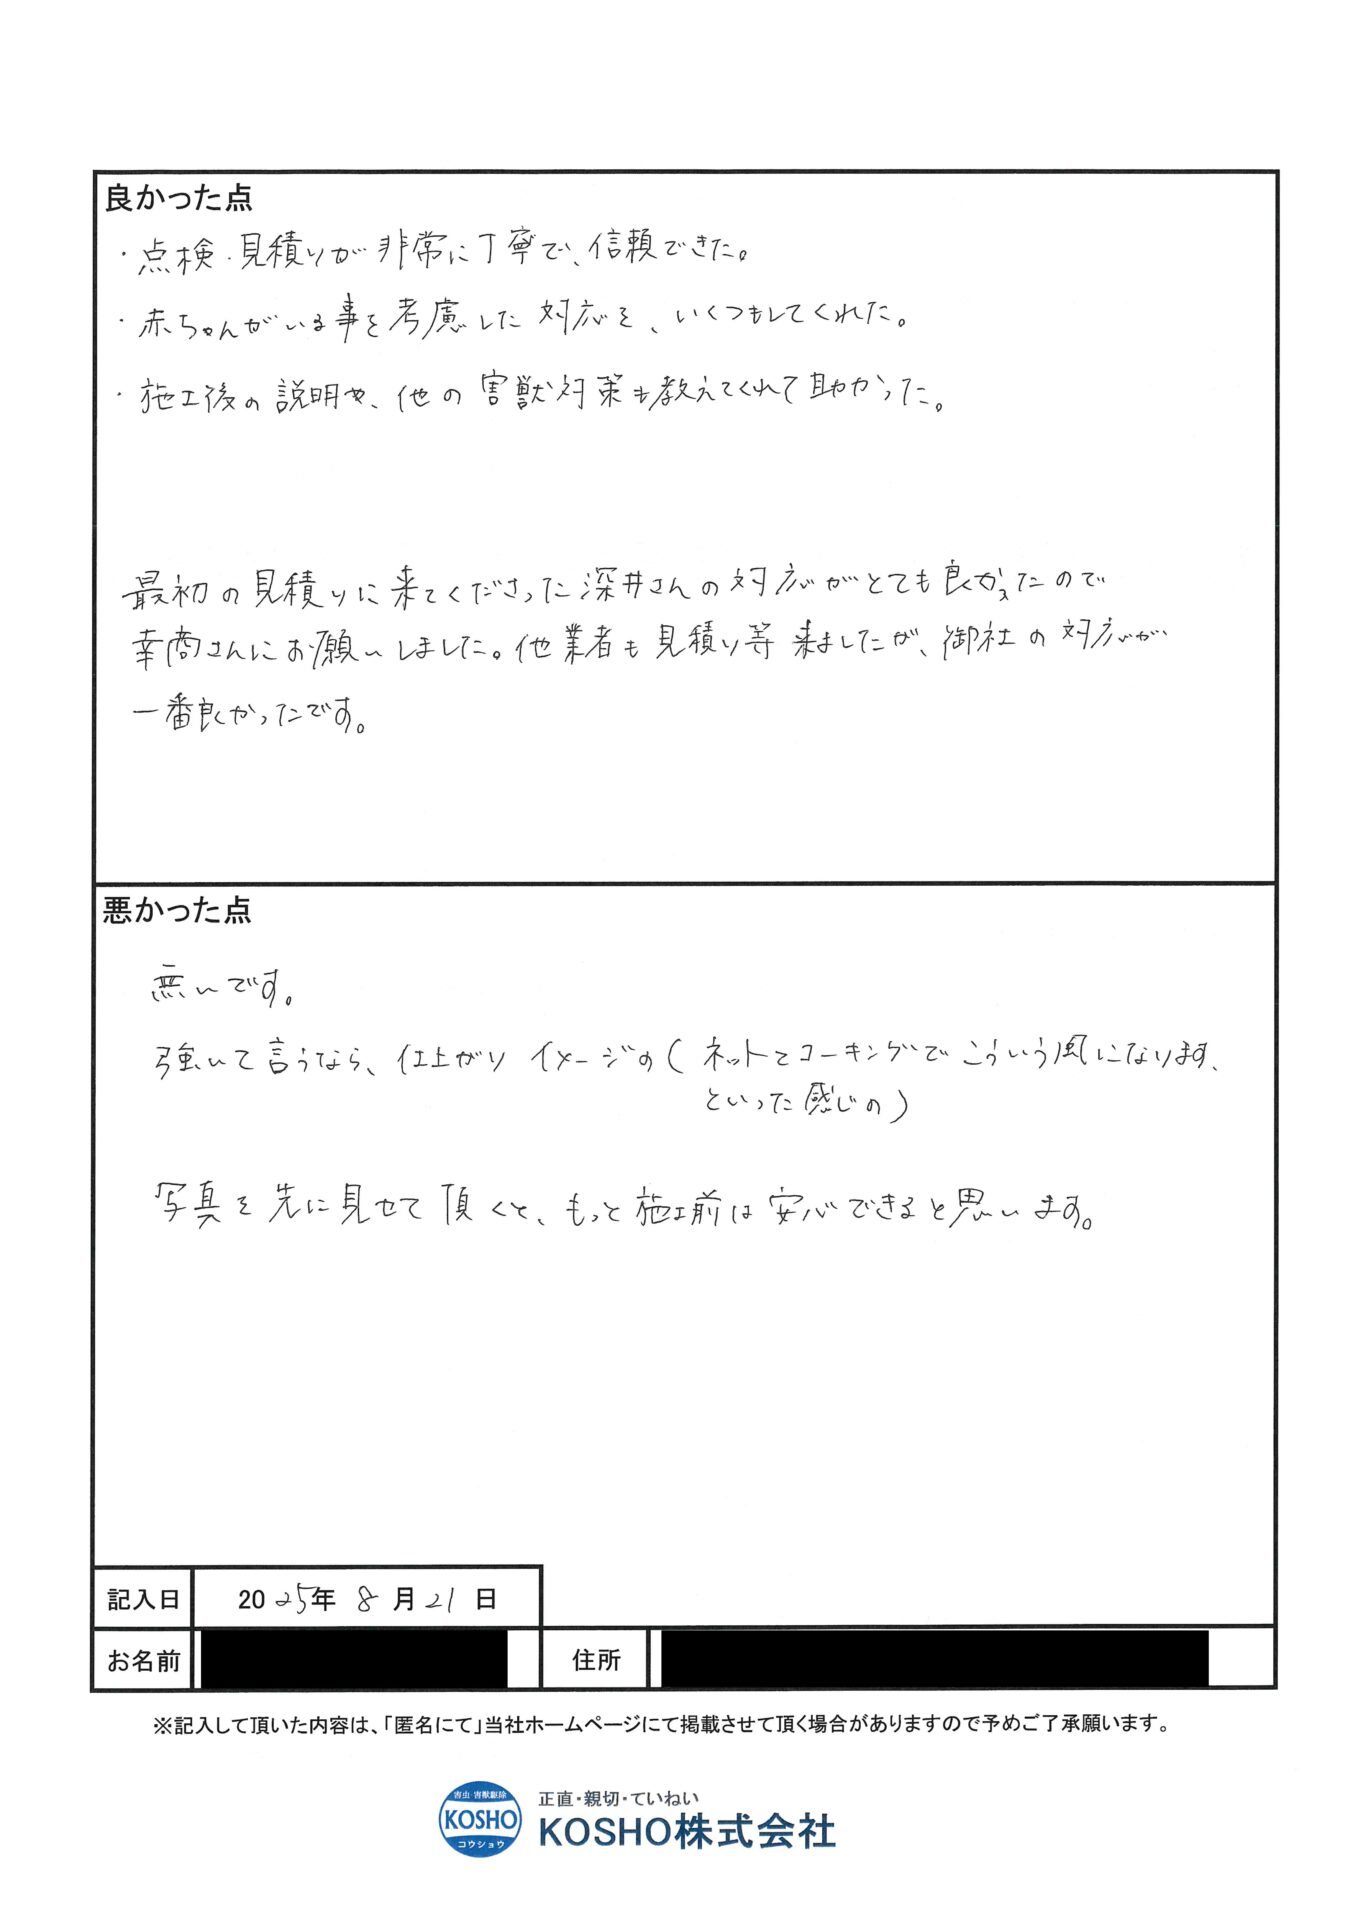 良かった点
・点検・見積りが非常に丁寧で、信頼できた。
・赤ちゃんがいる事を考慮した対応を、いくつもしてくれた。
・施工後の説明や、他の害獣対策も教えてくれて助かった。
最初の見積りに来てくださった深井さんの対応がとても良かったので
幸商さんにお願いしました。他業者も見積り等来ましたが、御社の対応が
一番良かったです。
悪かった点
無いです。
強いて言うなら、仕上がりイメージの(ネットとコーキングでこういう風になります、
といった感じの)
写真を先に見せて頂くと、もっと施工前は安心できると思います。
記入日 2025年 8月21日
お名前 住所
※記入して頂いた内容は、「匿名にて」当社ホームページにて掲載させて頂く場合がありますので予めご了承願います。
害虫・害獣駆除
KOSHO
コウショウ
正直・親切・ていねい
KOSHO株式会社